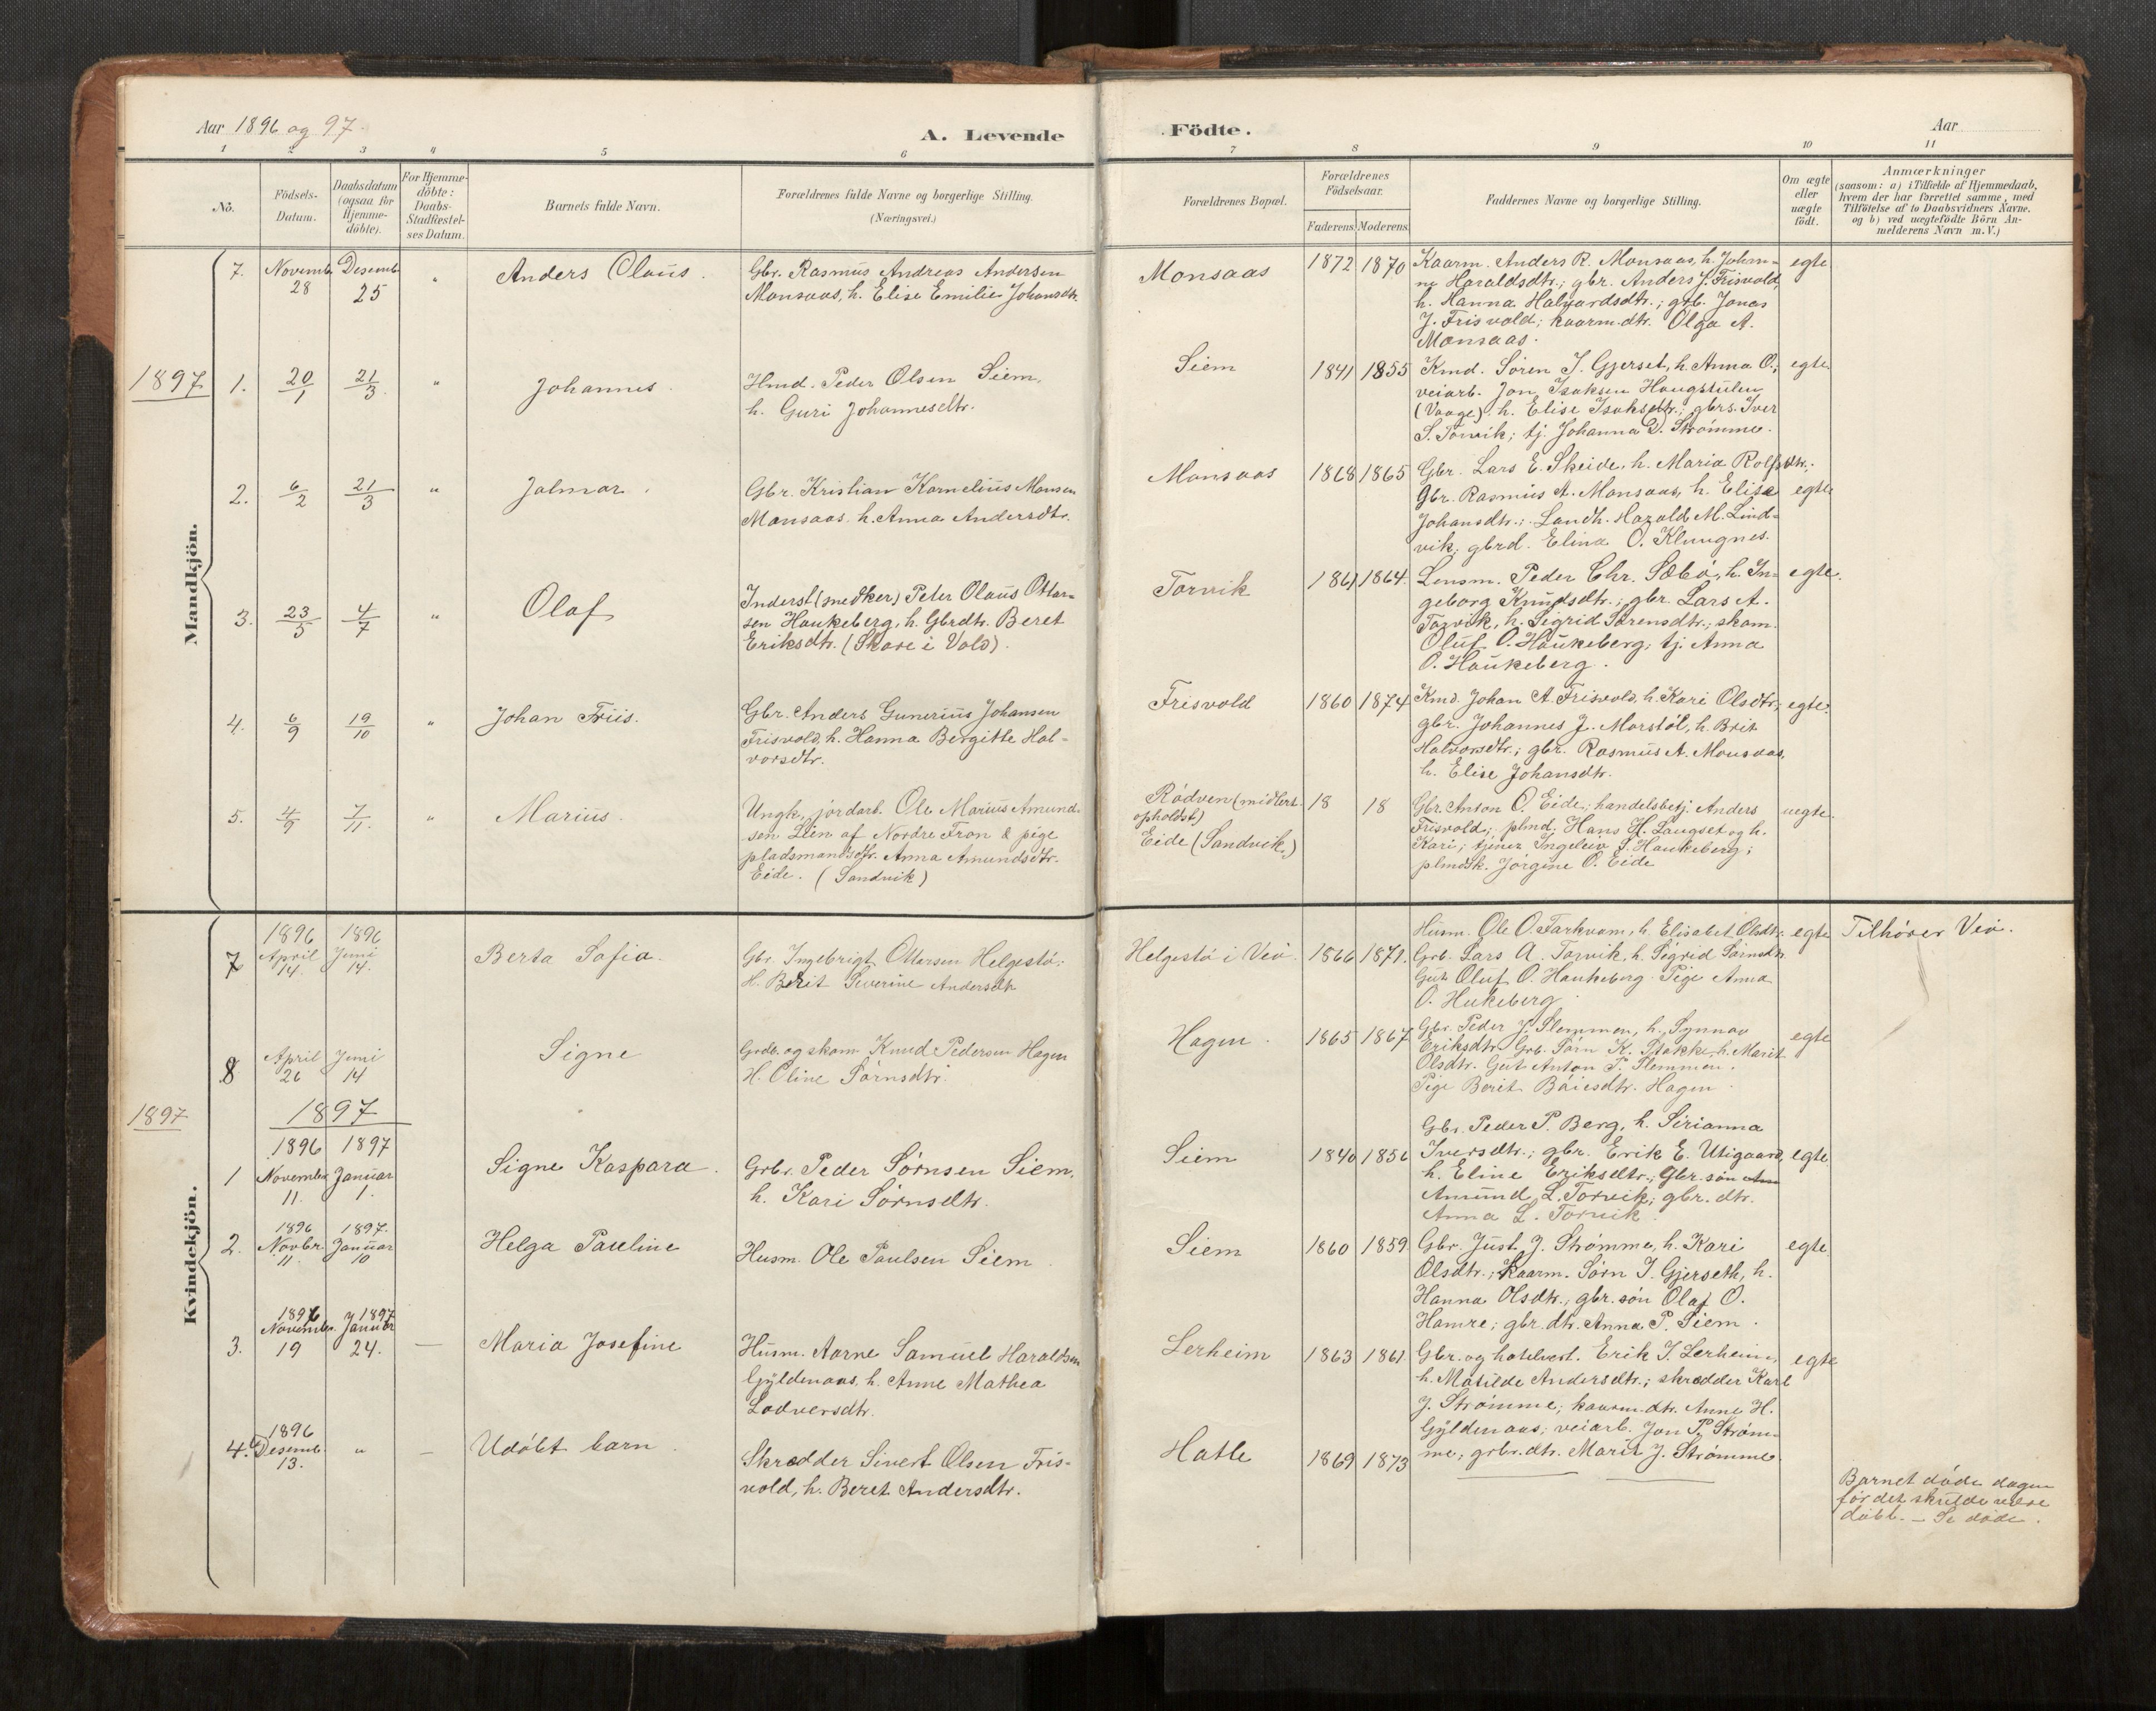 Aar 1896 og 97.
A. Levende
Födte.
Aar
1 2 3 4 5 6 7 8 9 10 11
No.
Födsels-
Datum.
Daabsdatum
(ogsaa for
Hjemme-
döbte).
For Hjemme-
döbte:
Daabs-
Stadfæstel-
ses Datum.
Barnets fulde Navn.
Forældrenes fulde Navne og borgerlige Stilling.
(Næringsvei.)
Forældrenes Bopæl.
Forældrenes
Födselsaar.
Faderens. Moderens.
Faddernes Navne og borgerlige Stilling.
Om ægte
eller
uægte
födt.
Anmærkninger
(saasom: a) i Tilfælde af Hjemmedaab,
hvem der har forrettet samme, med
Tilföielse af to Daabsvidners Navne.
og b) ved uægtefödte Börn An-
melderens Navn m. V.)
Mandkjön.
7. Novemb. 28 Desemb. 25 "
Anders Olaus.
Gbr. Rasmus Andreas Andersen
Monsaas, h. Elise Emilie Johansdtr.
Monsaas
1872 1870
Kaarm. Anders R. Monsaas, h. Johan-
ne Haraldsdtr.; gbr. Anders J. Frisvold,
h. Hanna Halvardsdtr.; grb. Jonas
J. Frisvold; kaarm.dtr. Olga A.
Monsaas.
egte
1897 1. 20/1 21/3 "
Johannes.
Hmd. Peder Olsen Siem,
h. Guri Johannesdtr.
Siem
1841 1855
Kmd. Sören I. Gjerset, h. Anna O.;
veiarb. Jon Isaksen Haugstulen
(Vaage), h. Elise Isaksdtr.; gbrs. Iver
S. Torvik; tj. Johanna D. Strömme.
egte.
2. 6/2 21/3 "
Jalmar.
Gbr. Kristian Kornelius Monsen
Monsaas. h. Anna Andersdtr.
Monsaas
1868 1865
Gbr. Lars E. Skeide, h. Maria Rolfsdtr.;
Gbr. Rasmus A. Monsaas, h. Elise
Johansdtr.; Landh. Harald M. Lind-
vik; gbrd. Elina O. Klungnes.
egte
3. 23/5 4/7 "
Olaf
Inderst (snedker) Peter Olaus Ottar-
sen Haukeberg, h. Gbrdtr. Beret
Eriksdtr. (Skare i Vold).
Torvik
1861 1864.
Lensm. Peder Chr. Sæbö, h. In-
geborg Knudsdtr.; gbr. Lars A.
Torvik, h. Sigrid Sörensdtr.; skom.
Oluf O. Haukeberg; tj. Anna
O. Haukeberg.
egte.
4. 6/9 19/10 "
Johan Friis.
Gbr. Anders Gunerius Johansen
Frisvold, h. Hanna Bergitte Hal-
vorsdtr.
Frisvold
1860 1874
Kmd. Johan A. Frisvold, h. Kari Olsdtr.;
gbr. Johannes J. Marstöl, h. Brit
Halvorsdtr.; gbr. Rasmus A. Monsaas,
h. Elise Johansdtr.
egte.
5. 4/9 7/11. "
Marius.
Ungk. jordarb. Ole Marius Amund-
sen Lien af Nordre Fron & pige
pladsmandsdtr. Anna Amundsdtr.
Eide. (Sandvik)
Rödven (midlert.
opholdst)
Eide (Sandvik.)
18 18
Gbr. Anton O. Eide; handelsbetj. Anders
Frisvold; plmd. Hans H. Langset og h.
Kari; tjener Ingeleiv S. Haukeberg;
plmdsk. Jörgine O. Eide
uegte.
Kvindekjön.
7 1896 April 14. 1896 Juni 14.
Berta Sofia.
Gbr. Ingebrigt Ottersen Helgestö.
H. Berit Severine Andersdtr
Helgestö i Veö.
1866 1871.
Husm. Ole O. Farkvam, h. Elisabet Olsdtr.
Grb. Lars A. Torvik, h. Sigrid Sörnsdtr.
Gut Oluf O. Haukeberg Pige Anna
O. Hukeberg
egte
Tilhörer Veö.
8 April 26 Juni 14
Signe
Grdb. og skom Knud Pedersen Hagen
H. Oline Sörnsdtr.
Hagen.
1865 1867
Gbr. Peder J. Slemmen, h. Synnav
Eriksdtr. Grb. Sörn K. Stokke h. Marit
Olsdtr. Gut Anton P. Slemmen.
Pige Berit Baiesdtr. Hagen.
egte
1897
1897
1 1896 November 11. 1897 Januar 1.
Signe Kaspara.
Grbr. Peder Sörnsen Siem,
h. Kari Sörnsdtr.
Siem
1840 1856
Gbr. Peder P. Berg, h. Sirianna
Iversdtr.; gbr. Errik E. Utigaard,
h. Eline Eriksdtr.; Gbr. sön Am
Amund L. Torvik; gbr. dtr.
Anna L. Torvik.
egte
2. 1896 Novbr. 11 1897. Januar 10
Helga Pauline
Husm. Ole Paulsen Siem.
Siem
1860 1859.
Gbr. Just J. Strömme, h. Kari
Olsdtr.; Kaarm. Sörn I. Gjerseth, h.
Hanna Olsdtr.; gbr. sön Olaf O.
Hamre; gbr. dtr. Anna P. Siem.
egte
3. 1896 November 19 1897 Januar 24. —
Maria Josefine
Husm. Aarne Samuel Haraldsen
Gyldenaas, h. Anne Mathea
Lodversdtr.
Lerheim
1863 1861
Gbr. og hotelvert. Erik J. Lerheim,
h. Matilde Andersdtr.; skrædder Karl
J. Strömme; kaarm. dtr. Anne H.
Gyldenaas; veiarb. Jon P. Ström-
me; grbr. dtr. Marit J. Strömme.
egte
4. 1896 Desemb. 13. " —
Udöbt barn.
Skrædder Sivert Olsen Fris-
vold, h. Beret Andersdtr.
Hatle
1869 1873
Barnet döde dagen
för det skulde være
döbt. — Se döde.